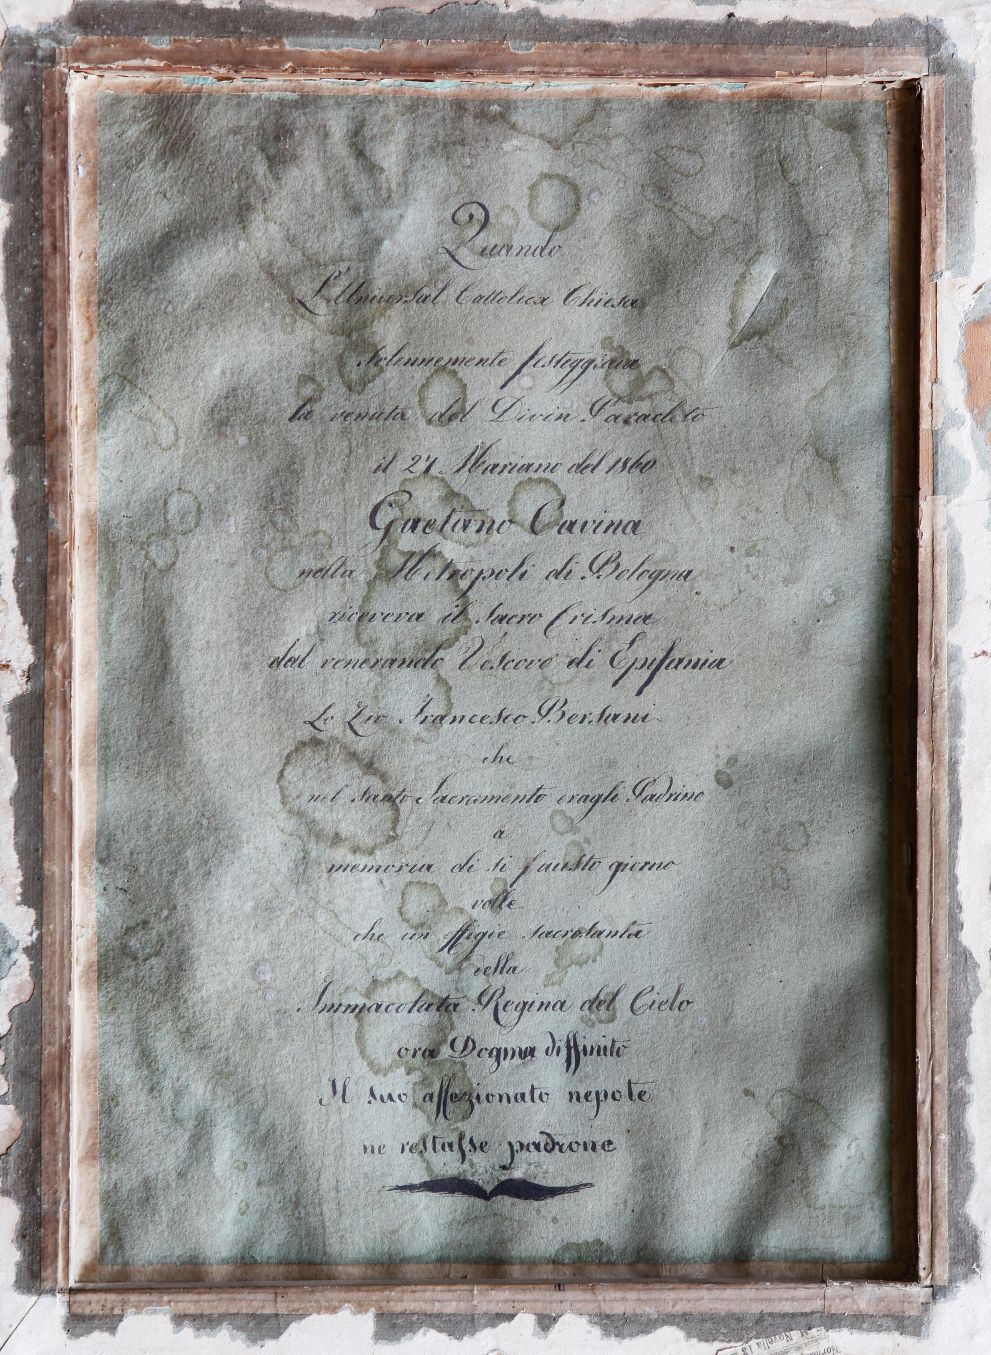 Quando
L'Universal Cattolica Chiesa
solennemente festeggiava
la venuta del Divin Paracleto
il 27 Mariano del 1860
Gaetano Cavina
nella Metropoli di Bologna
riceveva il sacro Crisma
dal venerando Vescovo di Epifania
Lo Zio Francesco Bersani
che
nel santo Sacramento eragli Padrino
a
memoria di sì fausto giorno
volle
che un effigie sacrosanta
della
Immacolata Regina del Cielo
ora Dogma diffinito
Il suo affezionato nepote
ne restasse padrone
Novella 13